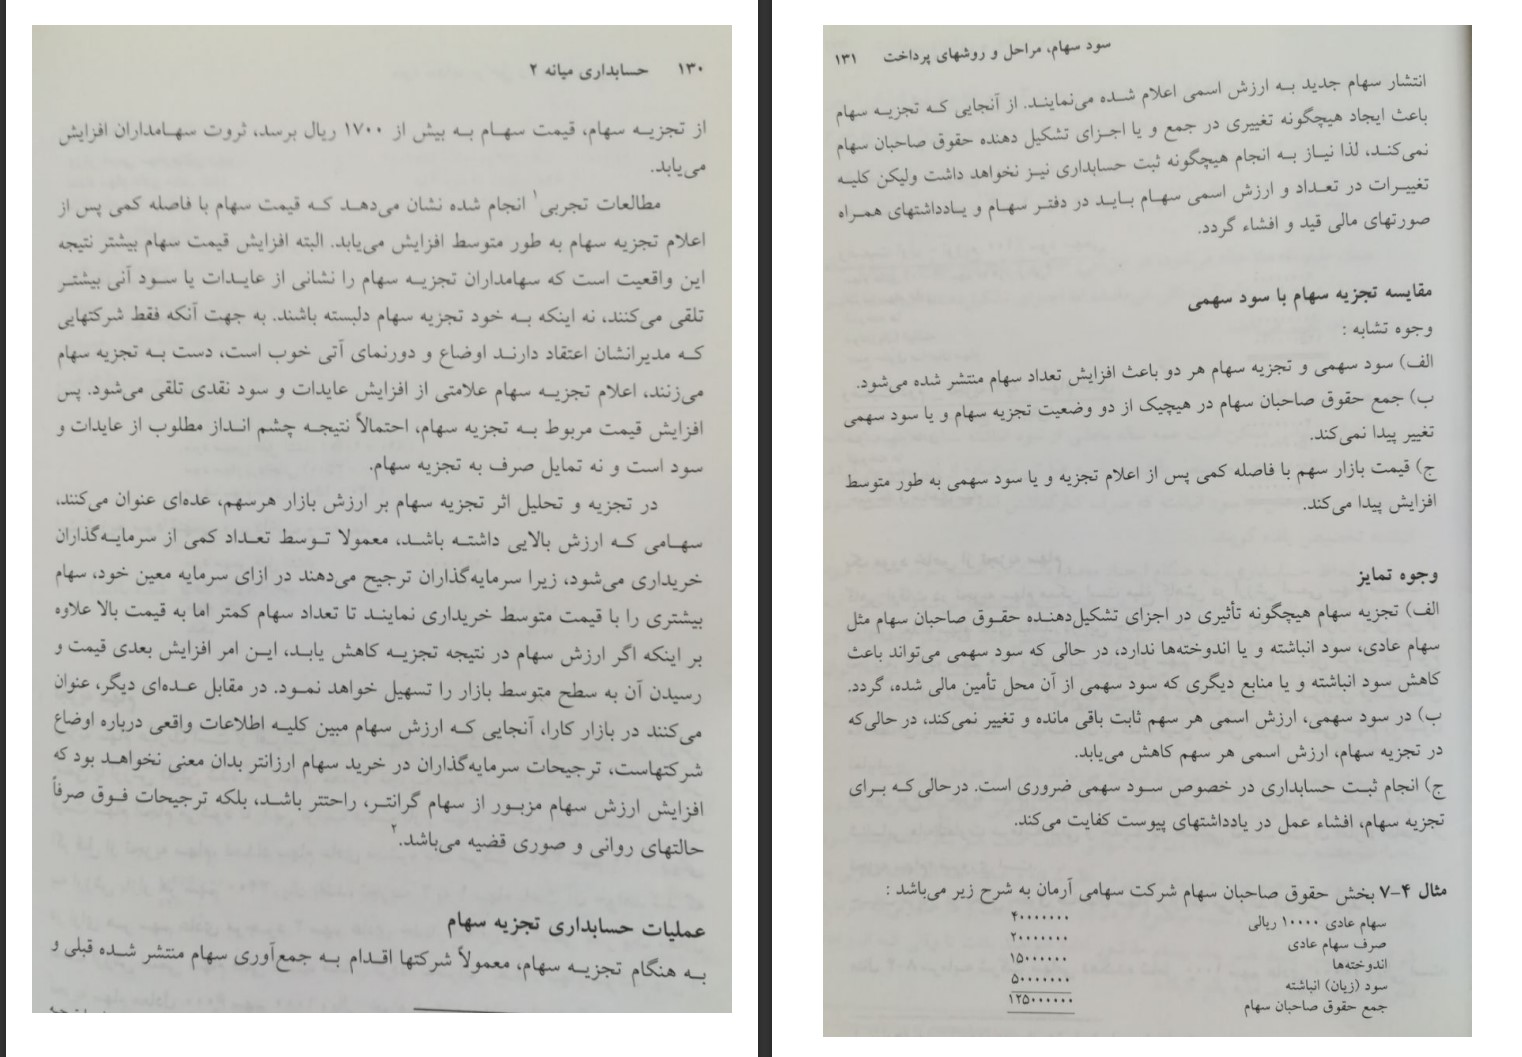 ۱۳۰ حسابداری میانه ۲
از تجزیه سهام، قیمت سهام به بیش از ۱۷۰۰ ریال برسد، ثروت سهامداران افزایش
می‌یابد.
مطالعات تجربی۱ انجام شده نشان می‌دهد که قیمت سهام با فاصله کمی پس از
اعلام تجزیه سهام به طور متوسط افزایش می‌یابد. البته افزایش قیمت سهام بیشتر نتیجه
این واقعیت است که سهامداران تجزیه سهام را نشانی از عایدات یا سود آتی بیشتر
تلقی می‌کنند، نه اینکه به خود تجزیه سهام دلبسته باشند. به جهت آنکه فقط شرکتهایی
که مدیرانشان اعتقاد دارند اوضاع و دورنمای آتی خوب است، دست به تجزیه سهام
می‌زنند، اعلام تجزیه سهام علامتی از افزایش عایدات و سود نقدی تلقی می‌شود. پس
افزایش قیمت مربوط به تجزیه سهام، احتمالاً نتیجه چشم انداز مطلوب از عایدات و
سود است و نه تمایل صرف به تجزیه سهام.
در تجزیه و تحلیل اثر تجزیه سهام بر ارزش بازار هرسهم، عده‌ای عنوان می‌کنند،
سهامی که ارزش بالایی داشته باشد، معمولا توسط تعداد کمی از سرمایه‌گذاران
خریداری می‌شود، زیرا سرمایه‌گذاران ترجیح می‌دهند در ازای سرمایه معین خود، سهام
بیشتری را با قیمت متوسط خریداری نمایند تا تعداد سهام کمتر اما به قیمت بالا علاوه
بر اینکه اگر ارزش سهام در نتیجه تجزیه کاهش یابد، این امر افزایش بعدی قیمت و
رسیدن آن به سطح متوسط بازار را تسهیل خواهد نمود. در مقابل عده‌ای دیگر، عنوان
می‌کنند در بازار کارا، آنجایی که ارزش سهام مبین کلیه اطلاعات واقعی درباره اوضاع
شرکتهاست، ترجیحات سرمایه‌گذاران در خرید سهام ارزانتر بدان معنی نخواهد بود که
افزایش ارزش سهام مزبور از سهام گرانتر، راحتتر باشد، بلکه ترجیحات فوق صرفاً
حالتهای روانی و صوری قضیه می‌باشد.۲
عملیات حسابداری تجزیه سهام
به هنگام تجزیه سهام، معمولاً شرکتها اقدام به جمع‌آوری سهام منتشر شده قبلی و
سود سهام، مراحل و روشهای پرداخت ۱۳۱
انتشار سهام جدید به ارزش اسمی اعلام شده می‌نمایند. از آنجایی که تجزیه سهام
باعث ایجاد هیچگونه تغییری در جمع و یا اجزای تشکیل دهنده حقوق صاحبان سهام
نمی‌کند، لذا نیاز به انجام هیچگونه ثبت حسابداری نیز نخواهد داشت ولیکن کلیه
تغییرات در تعداد و ارزش اسمی سهام باید در دفتر سهام و یادداشتهای همراه
صورتهای مالی قید و افشاء گردد.
مقایسه تجزیه سهام با سود سهمی
وجوه تشابه :
الف) سود سهمی و تجزیه سهام هر دو باعث افزایش تعداد سهام منتشر شده می‌شود.
ب) جمع حقوق صاحبان سهام در هیچیک از دو وضعیت تجزیه سهام و یا سود سهمی
تغییر پیدا نمی‌کند.
ج) قیمت بازار سهم با فاصله کمی پس از اعلام تجزیه و یا سود سهمی به طور متوسط
افزایش پیدا می‌کند.
وجوه تمایز
الف) تجزیه سهام هیچگونه تأثیری در اجزای تشکیل‌دهنده حقوق صاحبان سهام مثل
سهام عادی، سود انباشته و یا اندوخته‌ها ندارد، در حالی که سود سهمی می‌تواند باعث
کاهش سود انباشته و یا منابع دیگری که سود سهمی از آن محل تأمین مالی شده، گردد.
ب) در سود سهمی، ارزش اسمی هر سهم ثابت باقی مانده و تغییر نمی‌کند، در حالی‌که
در تجزیه سهام، ارزش اسمی هر سهم کاهش می‌یابد.
ج) انجام ثبت حسابداری در خصوص سود سهمی ضروری است. درحالی‌که برای
تجزیه سهام، افشاء عمل در یادداشتهای پیوست کفایت می‌کند.
مثال ۴–۷ بخش حقوق صاحبان سهام شرکت سهامی آرمان به شرح زیر می‌باشد :
سهام عادی ۱۰۰۰۰ ریالی ۴۰۰۰۰۰۰۰
صرف سهام عادی ۲۰۰۰۰۰۰۰
اندوخته‌ها ۱۵۰۰۰۰۰۰
سود (زیان) انباشته ۵۰۰۰۰۰۰۰
جمع حقوق صاحبان سهام ۱۲۵۰۰۰۰۰۰